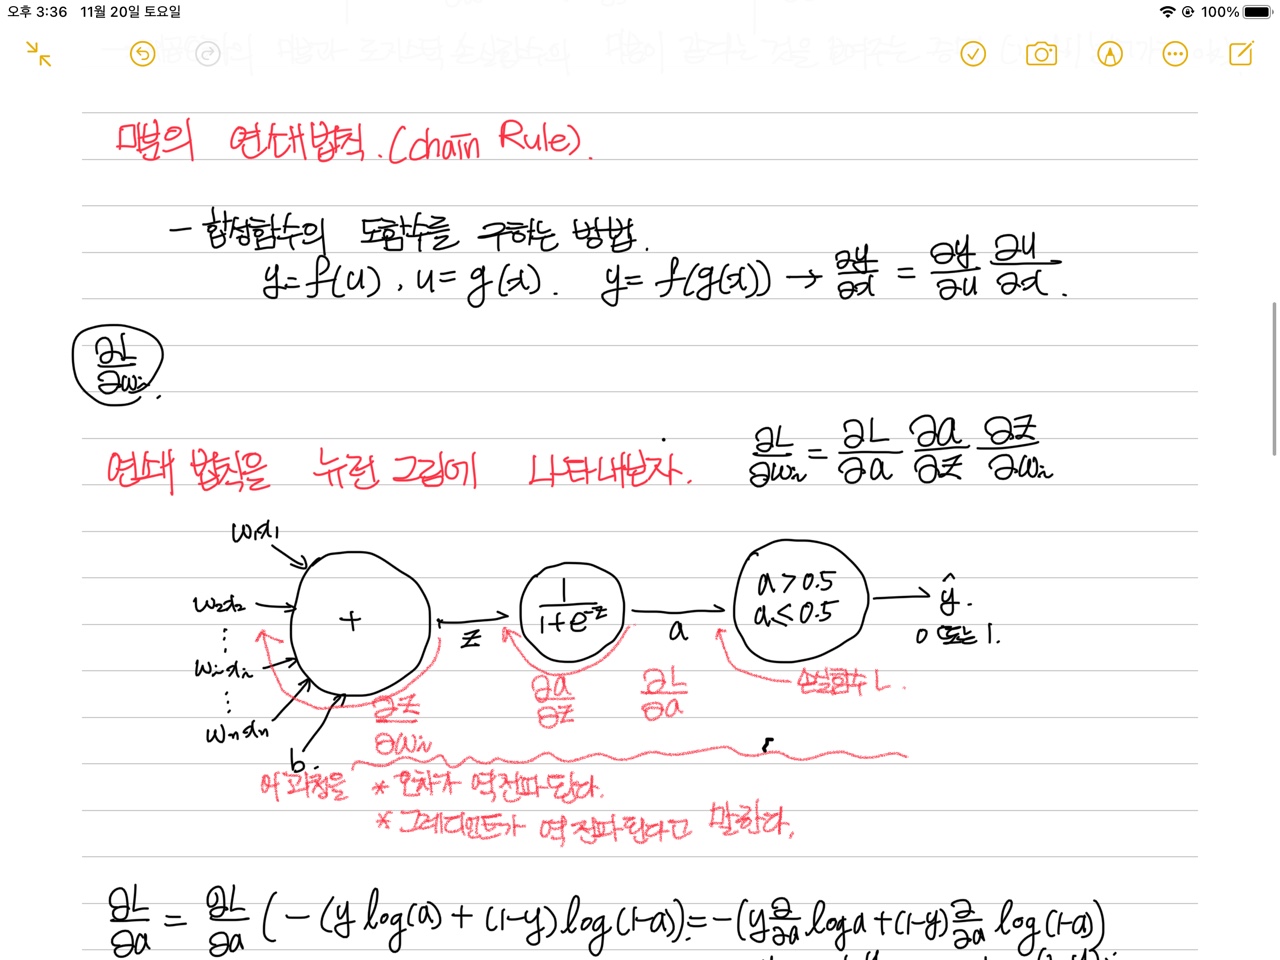 오후 3:36 11월 20일 토요일 100%
미분의 연쇄법칙.(chain Rule).
- 합성함수의 도함수를 구하는 방법.
y=f(u), u=g(x). y=f(g(x)) → ∂y/∂x = ∂y/∂u ∂u/∂x.
∂L/∂wi.
연쇄 법칙을 뉴런 그림에 나타내보자. ∂L/∂wi = ∂L/∂a ∂a/∂z ∂z/∂wi
w1x1
w2x2
⋮
wixi
⋮
wnxn
b.
+
z
1/1+e^-z
a
a>0.5
a≤0.5
ŷ.
0 또는 1.
손실함수 L.
∂z/∂wi
∂a/∂z
∂L/∂a
이 과정을 * 오차가 역전파 된다.
* 그레디언트가 역전파된다고 말한다.
∂L/∂a = ∂L/∂a (-(y log(a) + (1-y) log(1-a)) = -(y ∂/∂a log a + (1-y) ∂/∂a log(1-a))